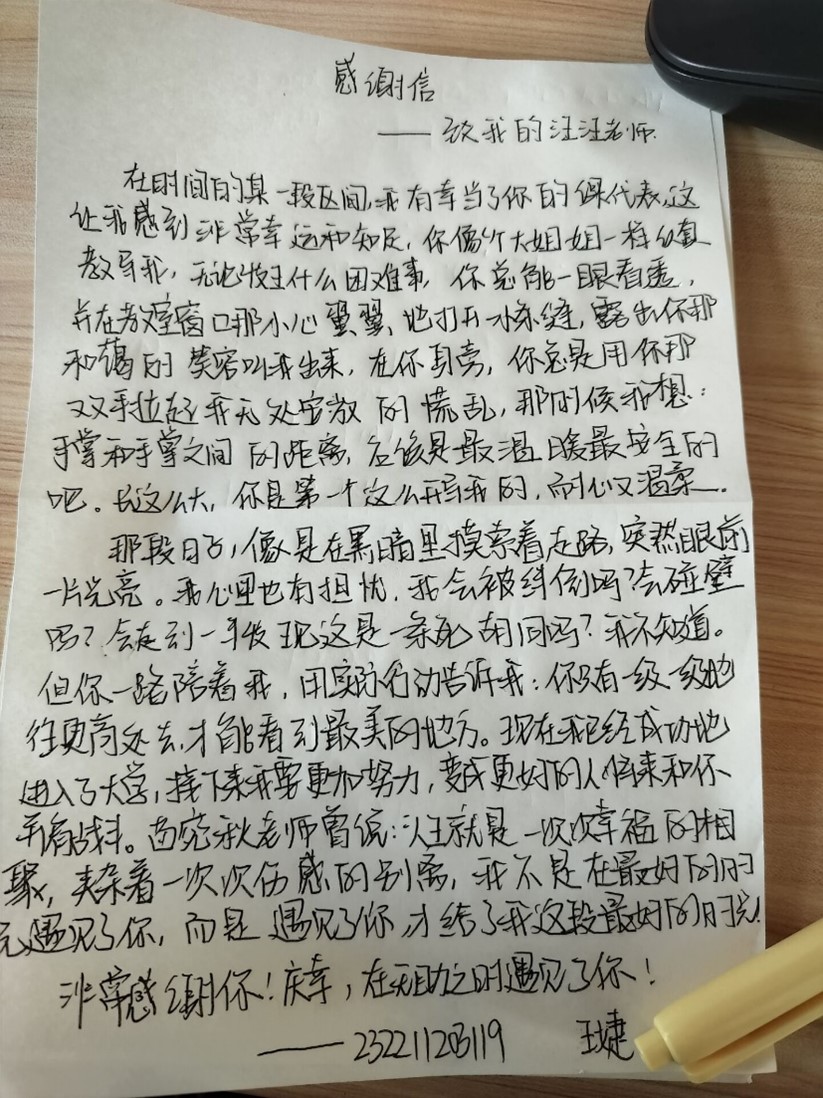 感谢信
—— 致我的汪汪老师.
在时间的某一段区间,我有幸当了你的课代表,这
让我感到非常幸运和知足,你像个大姐姐一样
教导我,无论发生什么困难事,你总能一眼看透,
并在教室窗口那小心翼翼、地打开一小条缝,露出你那
和蔼的笑容叫我出来,在你身旁,你总是用你那
双手拉起我无处安放的慌乱,那时候我想:
手掌和手掌之间的距离,应该是最温暖最安全的
吧。长这么大,你是第一个这么开导我的,而耐心又温柔.
那段日子,像是在黑暗里摸索着走路,突然眼前
一片光亮。我心里也有担忧,我会被绊倒吗?会碰壁
吗?会走到一半发现这是一条死胡同吗?我不知道。
但你一路陪着我,用实际行动告诉我:你只有一级一级地
往更高处去,才能看到最美的地方。现在我已经成功地
进入了大学,接下来我要更加努力,变成更好的人,将来和你
并肩战斗。苗宛秋老师曾说:人生就是一次次幸福的相
聚,夹杂着一次次伤感的别离,我不是在最好的时
光遇见了你,而是遇见了你,才给了我这段最好的时光!
非常感谢你!庆幸,在无助之时遇见了你!
—— 23221120319 王婕